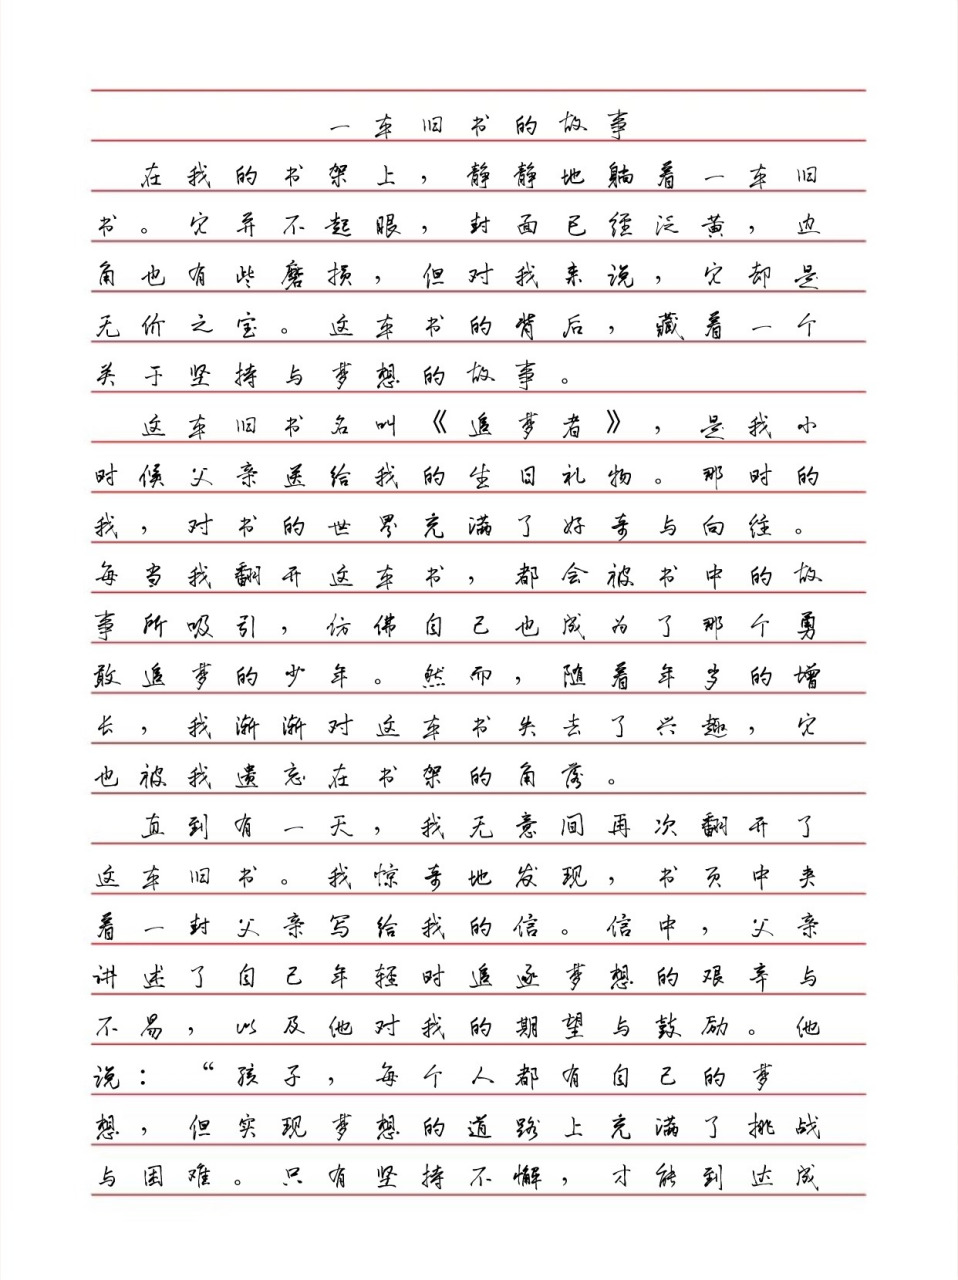 一本旧书的故事
在我的书架上，静静地躺着一本旧
书。它并不起眼，封面已经泛黄，边
角也有些磨损，但对我来说，它却是
无价之宝。这本书的背后，藏着一个
关于坚持与梦想的故事。
这本旧书名叫《追梦者》，是我小
时候父亲送给我的生日礼物。那时的
我，对书的世界充满了好奇与向往。
每当我翻开这本书，都会被书中的故
事所吸引，仿佛自己也成为了那个勇
敢追梦的少年。然而，随着年岁的增
长，我渐渐对这本书失去了兴趣，它
也被我遗忘在书架的角落。
直到有一天，我无意间再次翻开了
这本旧书。我惊奇地发现，书页中夹
着一封父亲写给我的信。信中，父亲
讲述了自己年轻时追逐梦想的艰辛与
不易，以及他对我的期望与鼓励。他
说：“孩子，每个人都有自己的梦
想，但实现梦想的道路上充满了挑战
与困难。只有坚持不懈，才能到达成